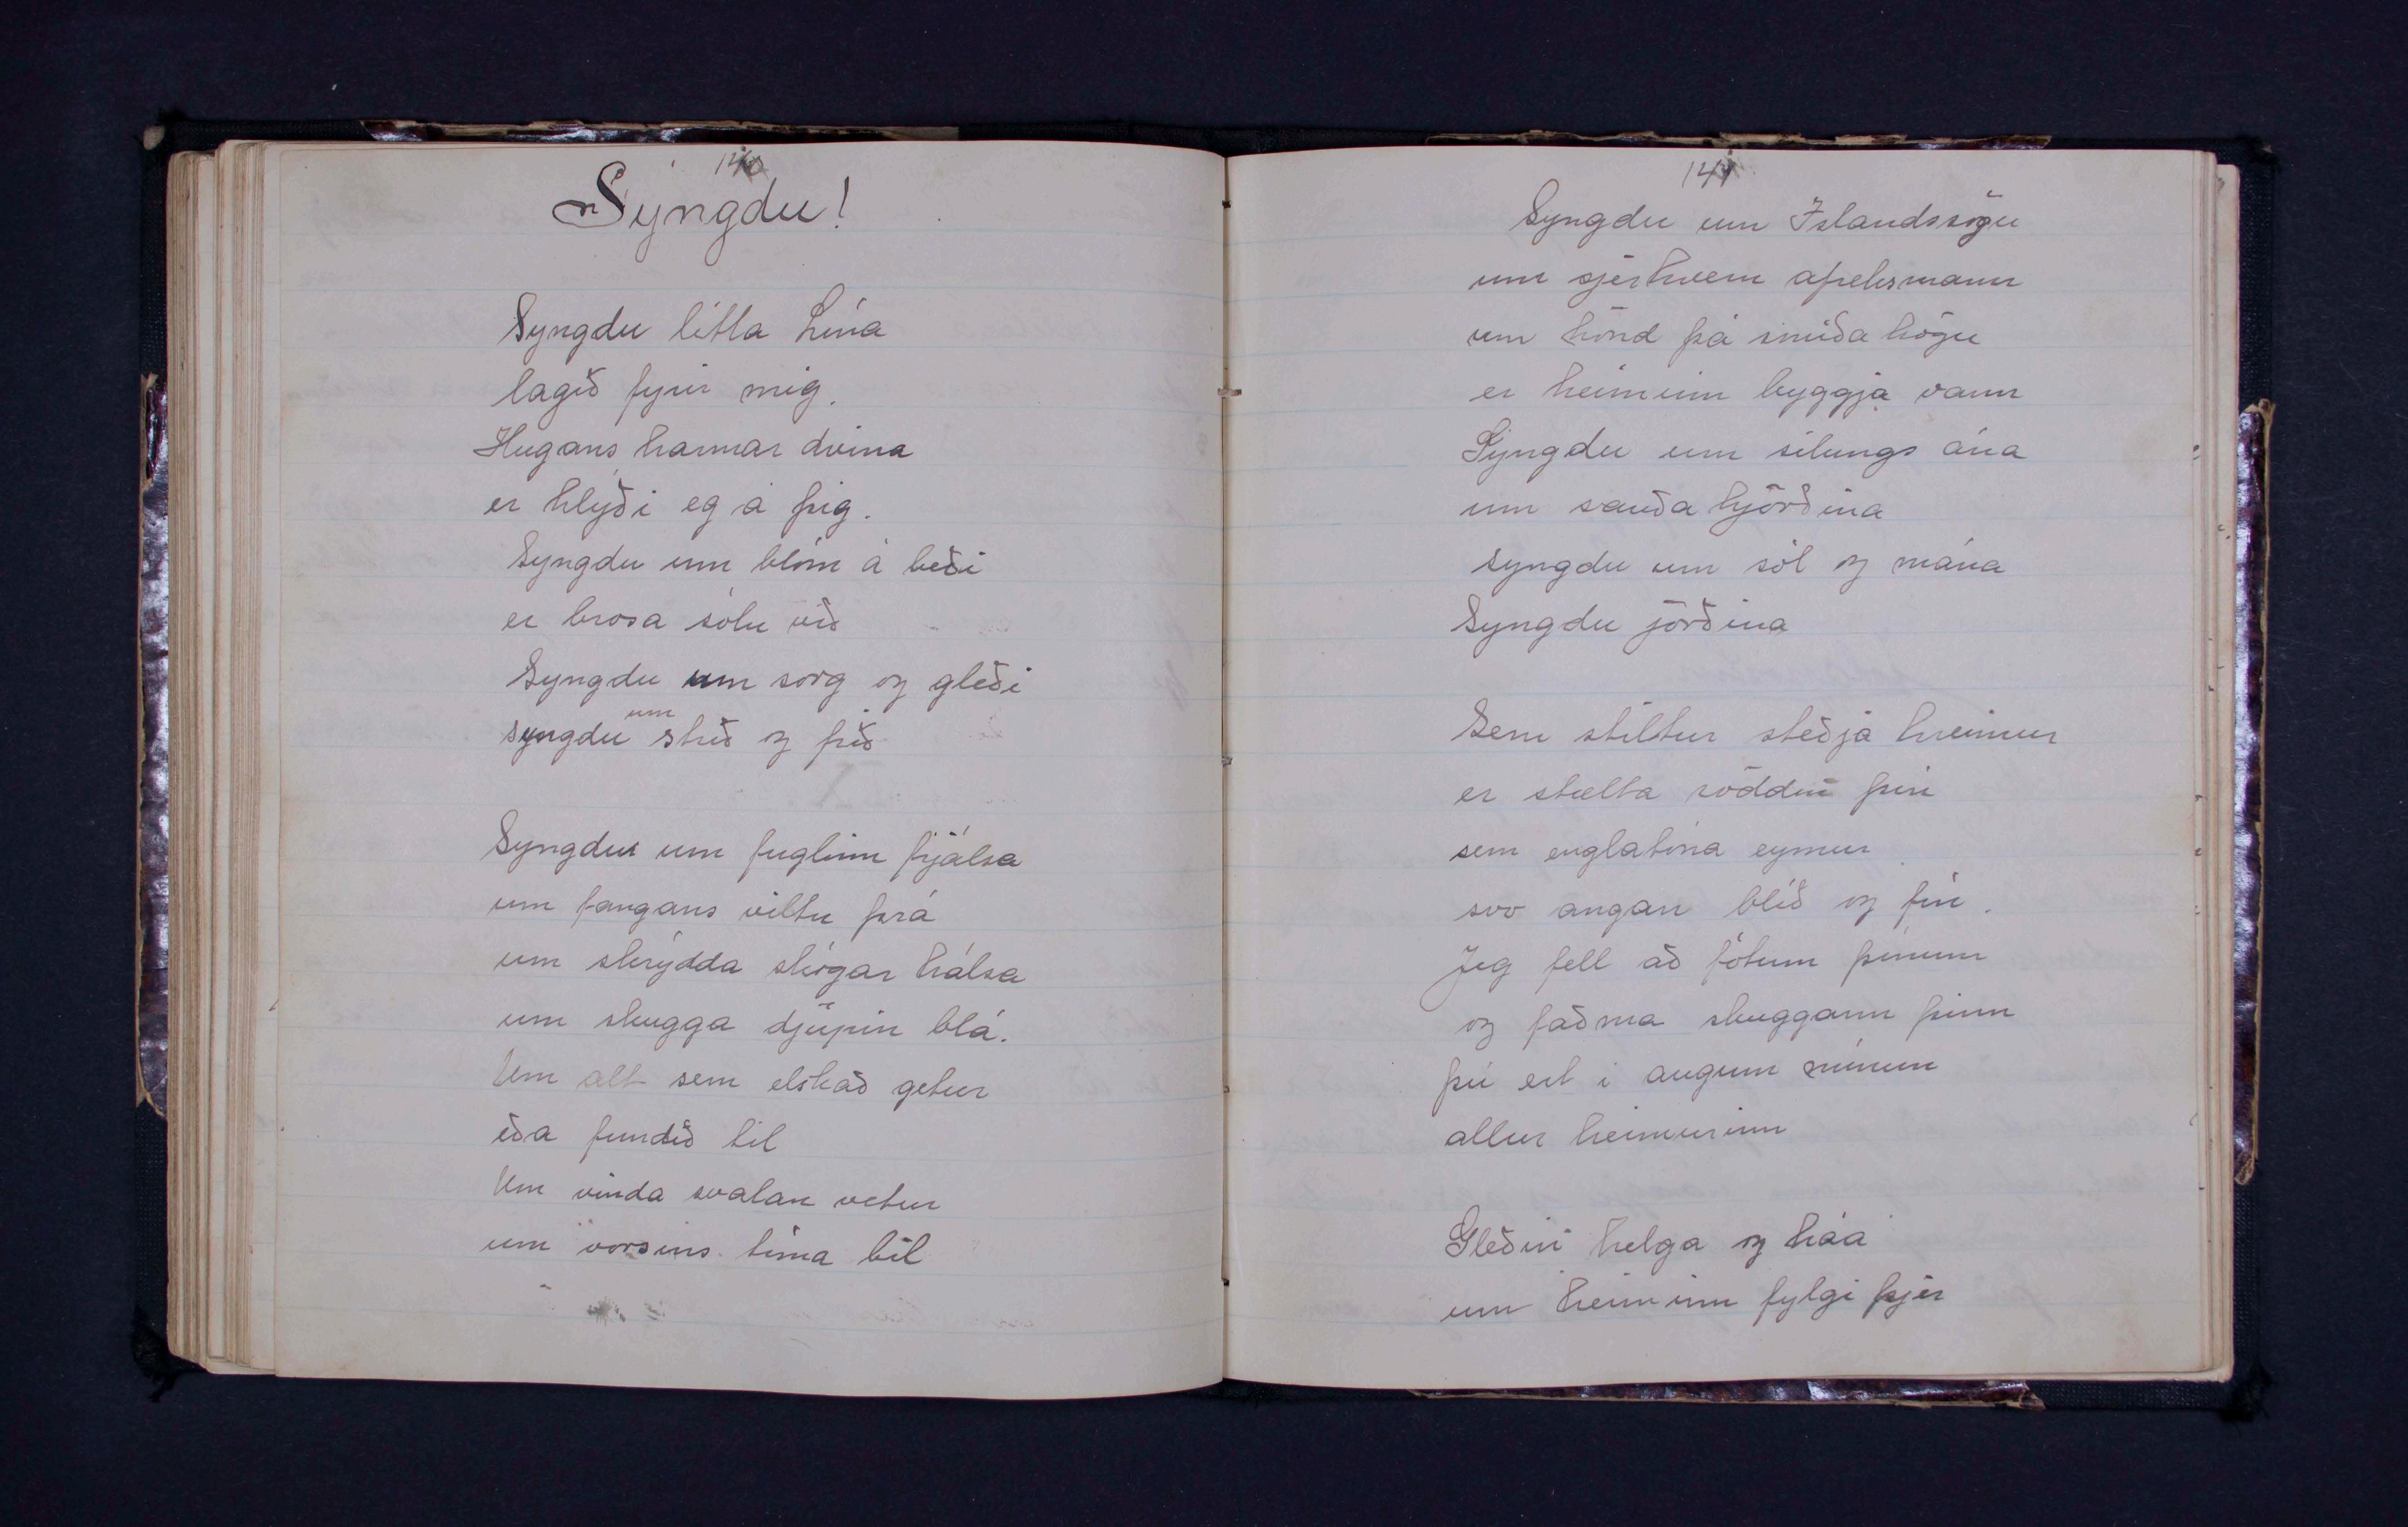 140
Syngdu!
Syngdu litla Lína
lagið fyrir mig.
Hugans harmar dvína
er hlýði eg á þig.
Syngdu um blóm á beði
er brosa sólu við
Syngdu um sorg og gleði
syngdu um stríð og frið
Syngdu um fuglinn frjálsa
um fangans viltu þrá
um skrýdda skógar hálsa
um skugga djúpin blá.
Um alt sem elskað getur
eða fundið til
Um vinda svalan vetur
um vorsins tíma bil
141
Syngdu um Íslandssögu
um sjerhvern afreksmann
um hönd þá smíða högu
er heiminn byggja vann
Syngdu um silungs ána
um sauða hjörðina
syngdu um sól og mána
Syngdu jörðina
Sem stiltur steðja hreimur
er stælta röddin þín
sem englatóna eymur
svo angan blíð og fín.
Jeg fell að fótum þínum
og faðma skuggann þinn
þú ert í augum mínum
allur heimurinn
Gleðin helga og háa
um heiminn fylgi þjer